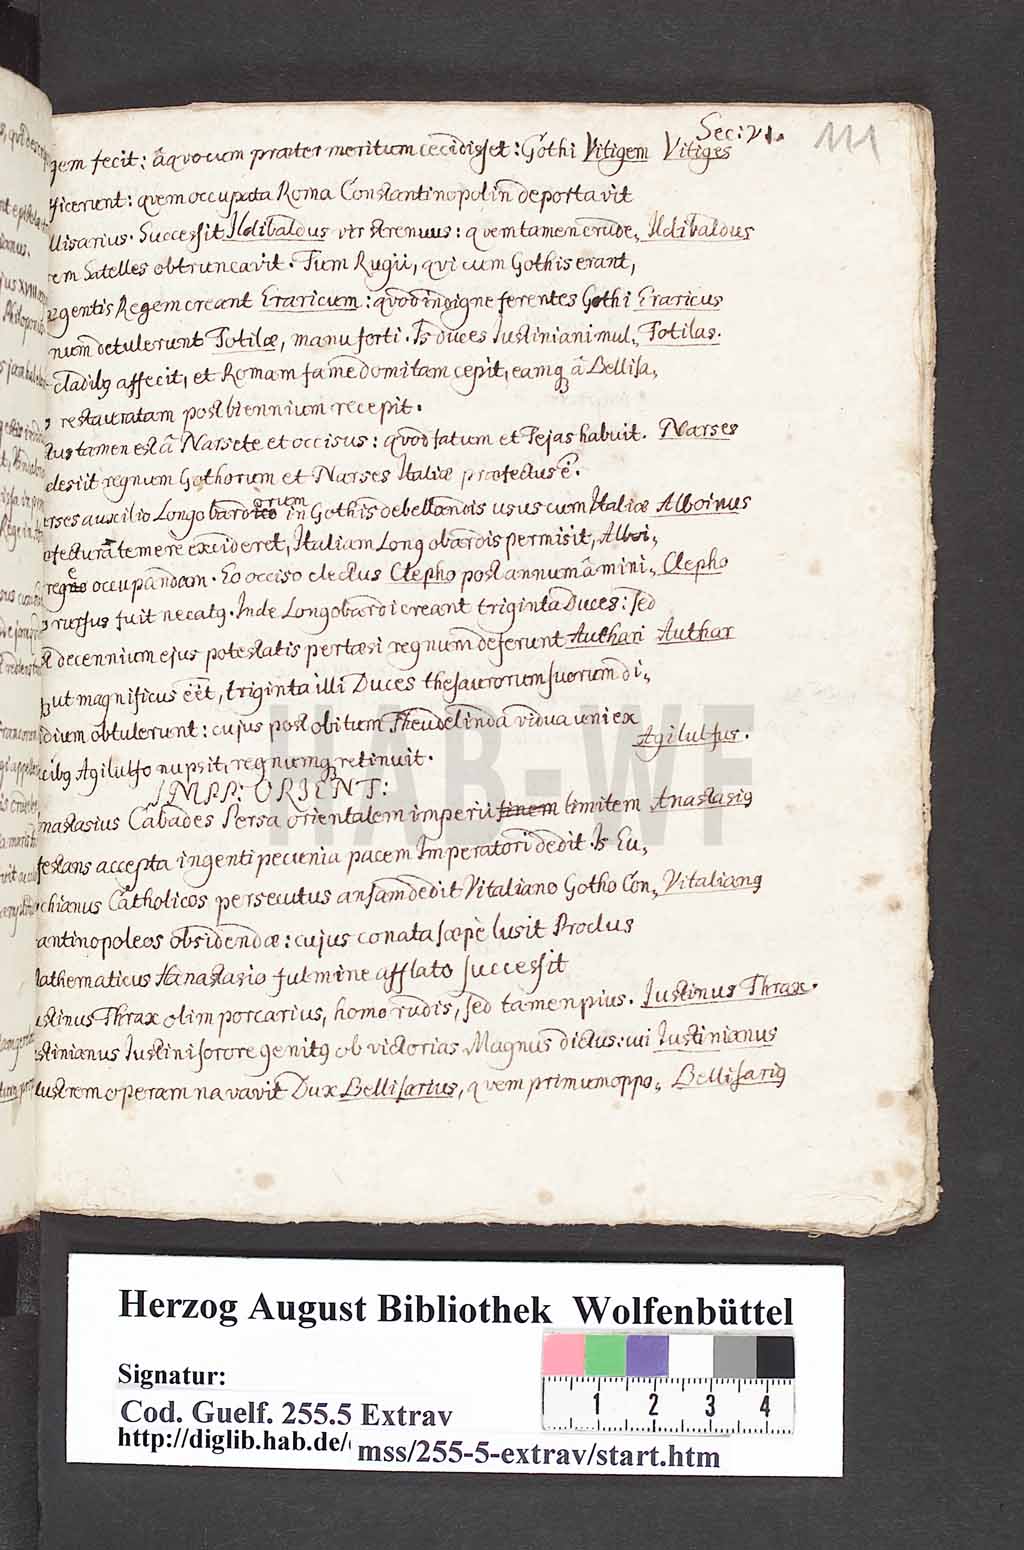 Sec: VI. 111
gem fecit: â quo cum præter meritum cecidisset: Gothi Vitigem Vitiges
ficerunt: quem occupata Roma Constantinopolin deportavit
llisarius. Successit Ildibaldus vir strenuus: quem tamen crude,, Ildibaldus
rem Satelles obtruncavit. Tum Rugii, qui cum Gothis erant,
gentis Regem creant Eraricum: quod indigne ferentes Gothi Eraricus
num detulerunt Totilæ, manu forti. Is duces Iustiniani mul,, Totilas.
cladibq affecit, et Romam fame domitam cepit, eamq â Bellisa,,
restauratam post biennium recepit.
tus tamen est â Narsete et occisus: quod fatum et Tejas habuit. Narses
desiit regnum Gothorum et Narses Italiæ præfectus ê.
erses auxilio Longobardorum in Gothis debellandis usus cum Italiæ Alboinus
fectura temere excideret, Italiam Longobardis permisit, Alboi,,
regno occupandam. Eo occiso electus Clepho post annum â mini,, Clepho
rursus fuit necatq. Inde Longobardi creant triginta Duces: sed
decennium ejus potestatis pertæsi regnum deferunt Authari Authar
ut magnificus êet, triginta illi Duces thesaurorum suorum di,,
dium obtulerunt: cujus post obitum Theudelinda vidua uni ex
Agilulfus.
cibq Agilulfo nupsit, regnumq retinuit.
IMPP: ORIENT:
nastasius Cabades Persa orientalem imperii finem limitem Anastasiq
festans accepta ingenti pecunia pacem Imperatori dedit. Is Eu,,
chianus Catholicos persecutus ansam dedit Vitaliano Gotho Con,, Vitalianq
antinopoleos obsidendæ: cujus conata sæpè lusit Proclus
athematicus Anastasio fulmine afflato successit
ustinus Thrax olim porcarius, homo rudis, sed tamen pius. Iustinus Thrax.
stinianus Iustini sorore genitq ob victorias Magnus dictus: cui Iustinianus
lustrem operam navavit Dux Bellisarius, quem primum oppo,, Bellisariq
HAB-WF
Herzog August Bibliothek Wolfenbüttel
Signatur:
Cod. Guelf. 255.5 Extrav
http://diglib.hab.de/ mss/255-5-extrav/start.htm
1 2 3 4